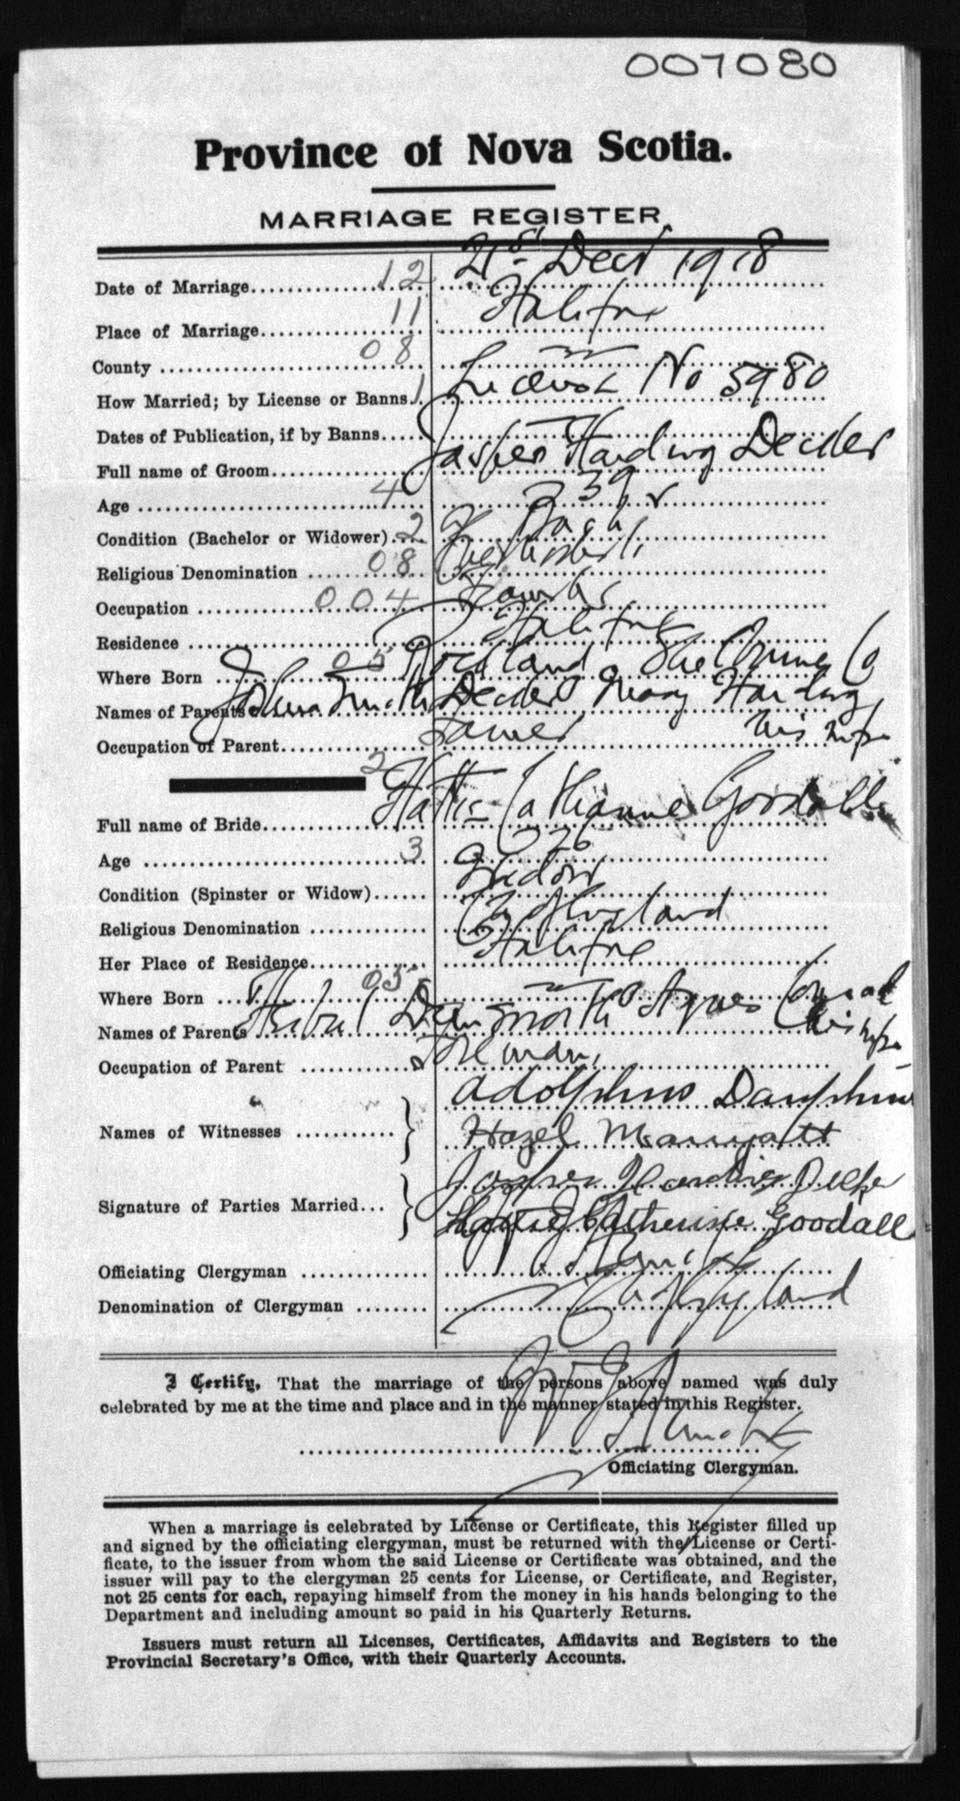 007080
Province of Nova Scotia.
MARRIAGE REGISTER.
Date of Marriage 12 21st Dec 1918
Place of Marriage 11 Halifax
County 08 "
How Married; by License or Banns 1 License No 5980
Dates of Publication, if by Banns
Full name of Groom Jasper Harding Decker
Age 4 39
Condition (Bachelor or Widower) 2 Bach
Religious Denomination 08
Occupation 004
Residence Halifax
Where Born 05 Rockland Shelburne Co
Names of Parents Joshua Smith Decker Mary Harding his wife
Occupation of Parent
2
Full name of Bride Hattie Catharine Goodall
Age 3
Condition (Spinster or Widow) Widow
Religious Denomination Ch of England
Her Place of Residence Halifax
Where Born 05 "
Names of Parents Agnes Conrad his wife
Occupation of Parent
Names of Witnesses Adolphus Dauphinee
Hazel Marryatt
Signature of Parties Married Jasper Harding Decker
Hattie Catherine Goodall
Officiating Clergyman
Denomination of Clergyman Ch of England
I Certify, That the marriage of the persons above named was duly
celebrated by me at the time and place and in the manner stated in this Register.
Officiating Clergyman.
When a marriage is celebrated by License or Certificate, this Register filled up
and signed by the officiating clergyman, must be returned with the License or Certi-
ficate, to the issuer from whom the said License or Certificate was obtained, and the
issuer will pay to the clergyman 25 cents for License, or Certificate, and Register,
not 25 cents for each, repaying himself from the money in his hands belonging to the
Department and including amount so paid in his Quarterly Returns.
Issuers must return all Licenses, Certificates, Affidavits and Registers to the
Provincial Secretary's Office, with their Quarterly Accounts.